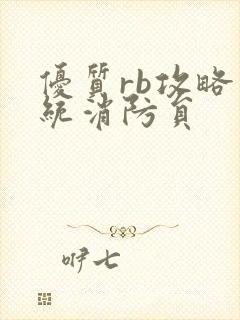 優質rb攻略
統消防員
咿七